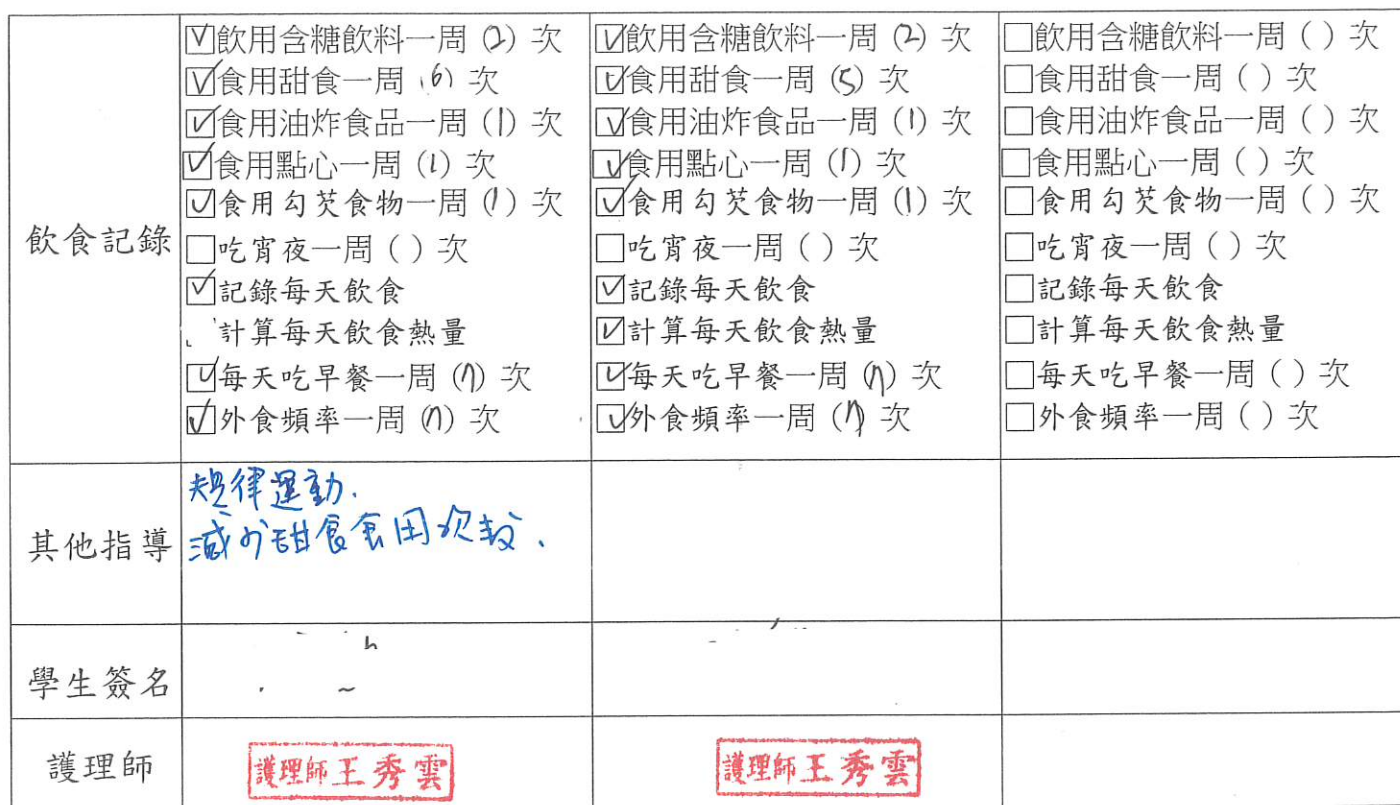 飲食記錄
☑飲用含糖飲料一周 (2) 次
☑食用甜食一周 (6) 次
☑食用油炸食品一周 (1) 次
☑食用點心一周 (1) 次
☑食用勾芡食物一周 (1) 次
☐吃宵夜一周 ( ) 次
☑記錄每天飲食
計算每天飲食熱量
☑每天吃早餐一周 (7) 次
☑外食頻率一周 (7) 次
☑飲用含糖飲料一周 (2) 次
☑食用甜食一周 (5) 次
☑食用油炸食品一周 (1) 次
☑食用點心一周 (1) 次
☑食用勾芡食物一周 (1) 次
☐吃宵夜一周 ( ) 次
☑記錄每天飲食
☑計算每天飲食熱量
☑每天吃早餐一周 (7) 次
☑外食頻率一周 (7) 次
☐飲用含糖飲料一周 ( ) 次
☐食用甜食一周 ( ) 次
☐食用油炸食品一周 ( ) 次
☐食用點心一周 ( ) 次
☐食用勾芡食物一周 ( ) 次
☐吃宵夜一周 ( ) 次
☐記錄每天飲食
☐計算每天飲食熱量
☐每天吃早餐一周 ( ) 次
☐外食頻率一周 ( ) 次
其他指導
規律運動.
減少甜食食用次數.
學生簽名
護理師
護理師王秀雲
護理師王秀雲